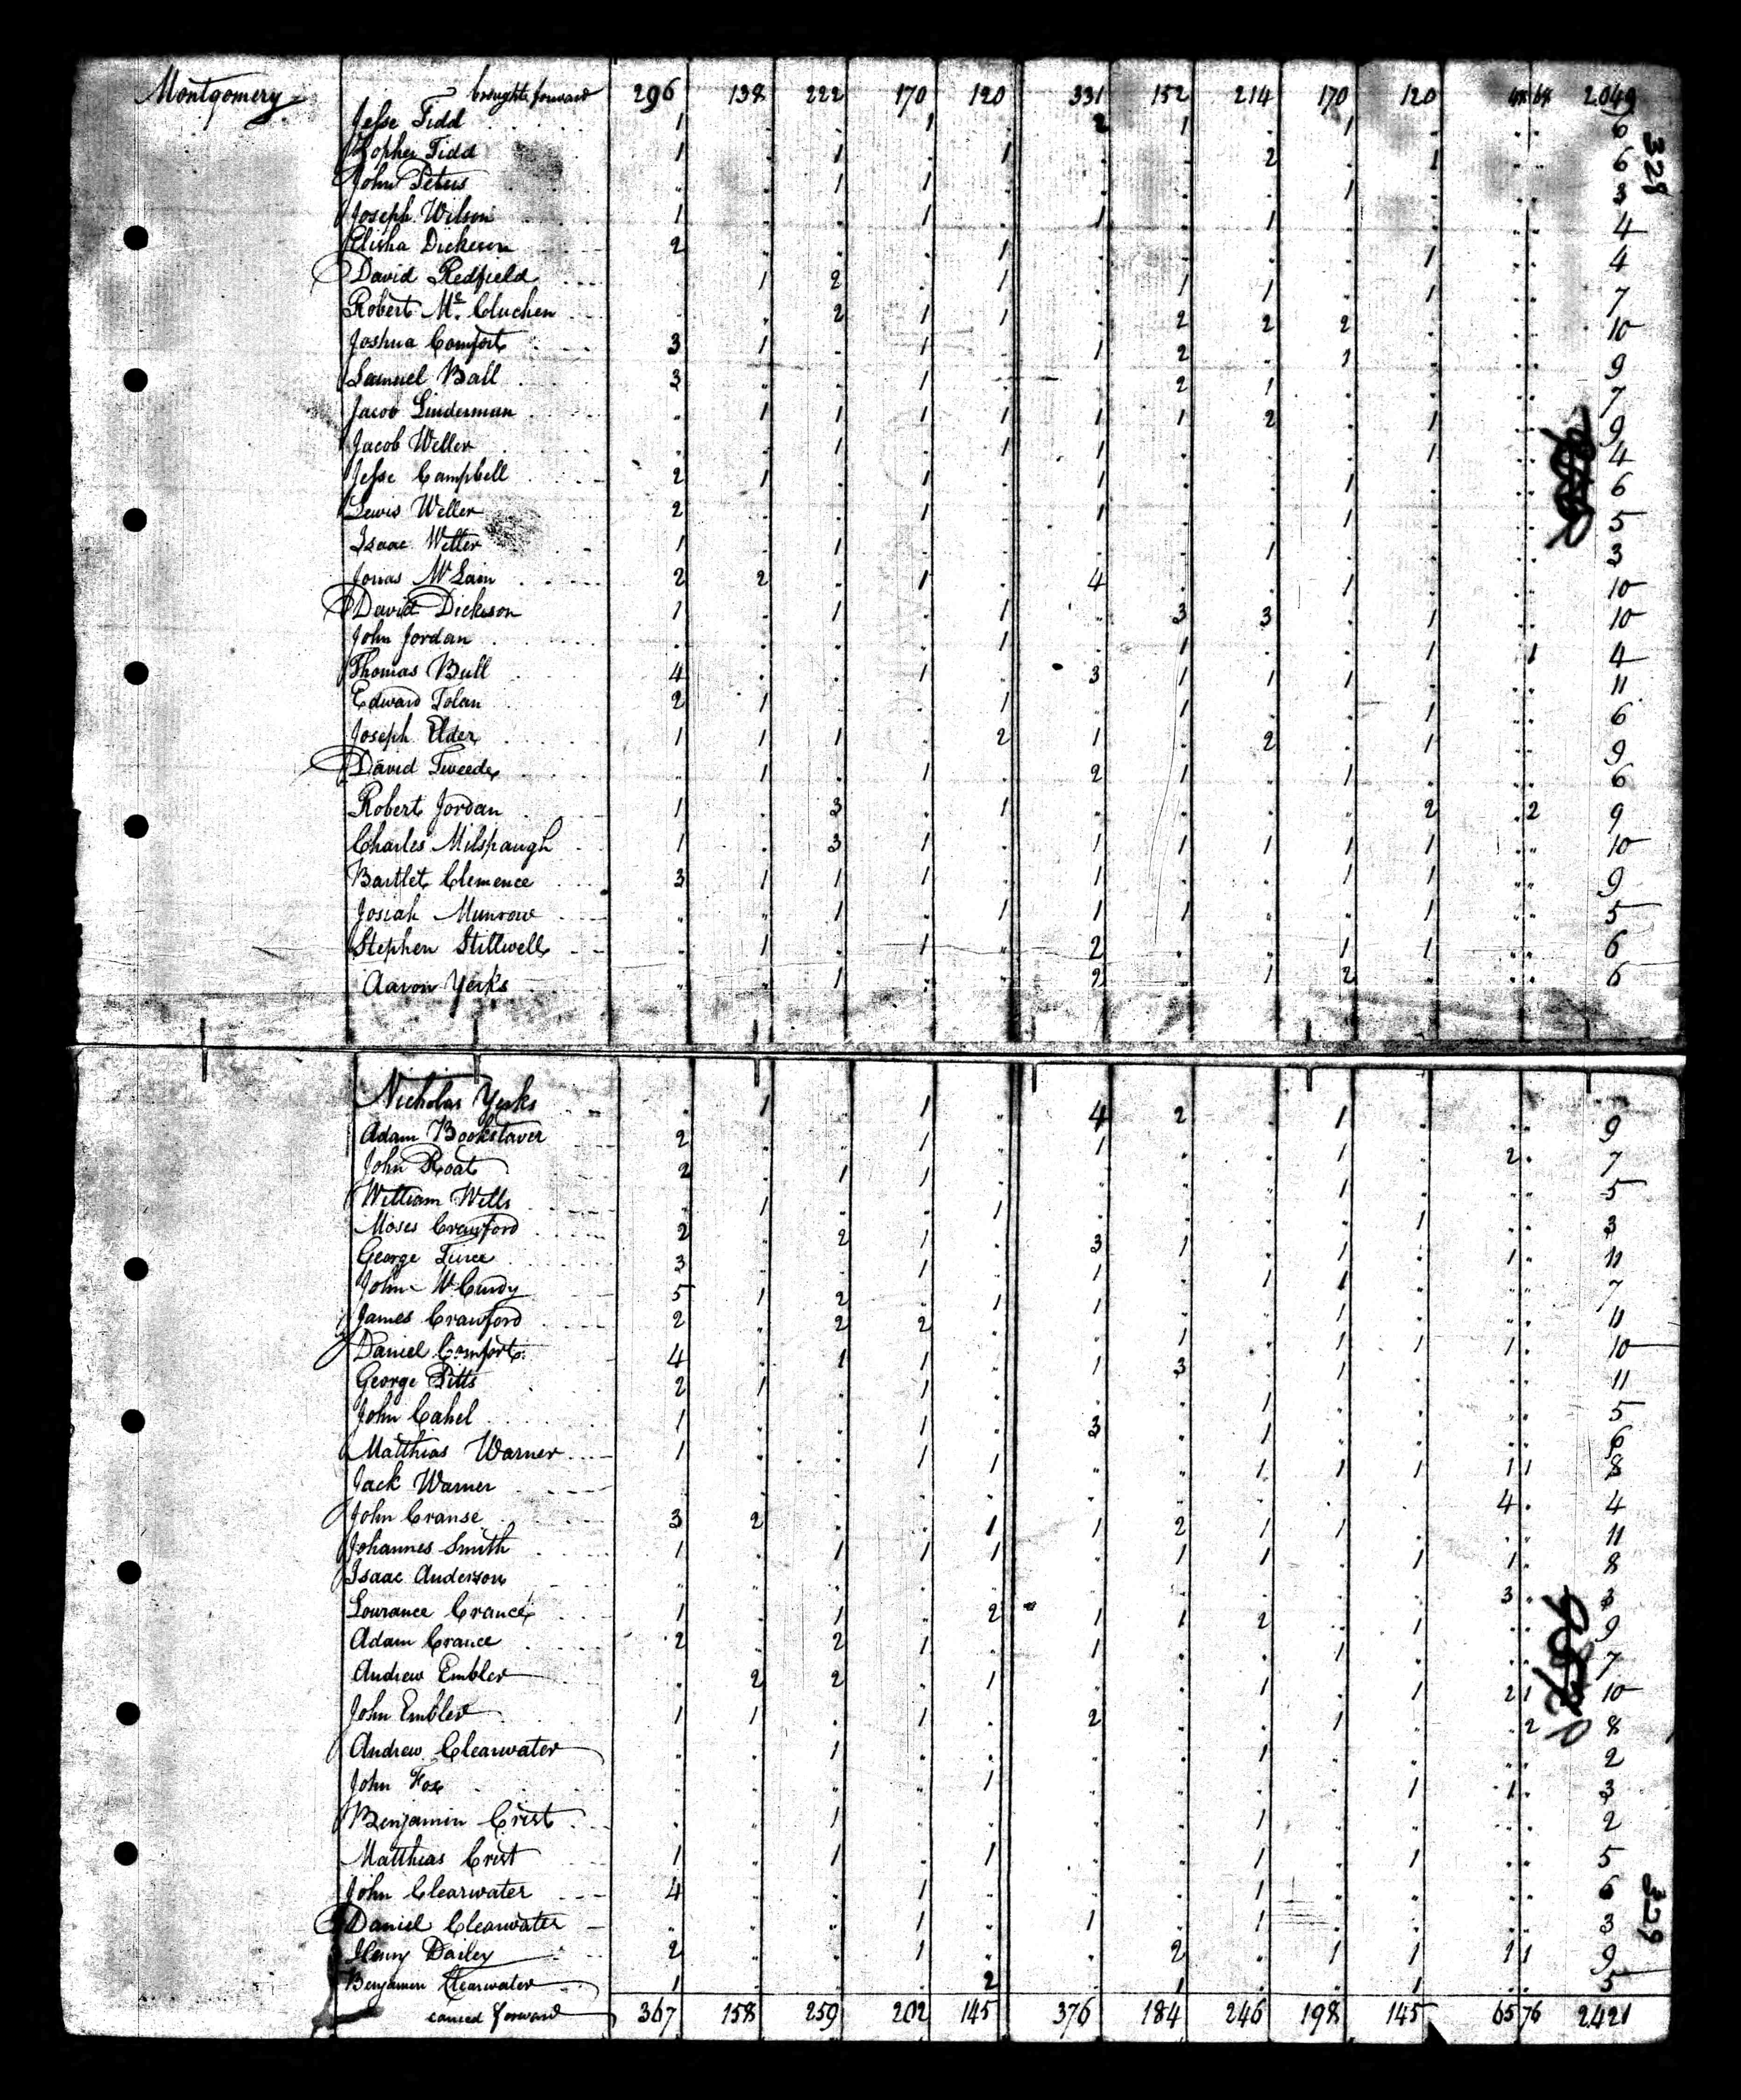 Montgomery brought forward 296 138 222 170 120 331 152 214 170 120 68 2049
Jesse Tidd 1 . . 1 . 2 1 . 1 . . . 6
Zopher Tidd 1 . 1 . 1 . . 2 . 1 . . 6
328
John Peters . . 1 1 . . . . 1 . . . 3
Joseph Wilson 1 . . 1 . 1 . 1 . . . . 4
Elisha Dickeson 2 . . . 1 . . . . 1 . . 4
David Redfield . 1 2 . 1 . 1 1 . 1 . . 7
Robert Mc Cluchen . . 2 1 1 . 2 2 2 . . . 10
Joshua Comfort 3 1 . 1 . 1 2 . 1 . . . 9
Samuel Ball 3 . . 1 . . 2 1 . . . . 7
Jacob Linderman . 1 1 1 1 1 1 2 . 1 . . 9
Jacob Weller . . 1 . 1 1 . . . 1 . . 4
Jesse Campbell 2 1 . 1 . 1 . . 1 . . . 6
Lewis Weller 2 . . 1 . 1 . . 1 . . . 5
Isaac Weller 1 . 1 . . . . 1 . . . . 3
Jonas McLain 2 2 . 1 . 4 . . 1 . . . 10
David Dickeson 1 . 1 . 1 . 3 3 . 1 . . 10
John Jordan . . . . 1 . 1 . . 1 . 1 4
Thomas Bull 4 . . 1 . 3 1 1 1 . . . 11
Edward Tolan 2 1 . . 1 . 1 . . 1 . . 6
Joseph Elder 1 1 1 . 2 1 . 2 . 1 . . 9
David Tweedy . 1 . 1 . 2 1 . 1 . . . 6
Robert Jordan 1 . 3 . 1 . . . . 2 . 2 9
Charles Milspaugh 1 . 3 1 . 1 1 1 1 1 . . 10
Bartlet Clemence 3 1 1 1 . 1 . . 1 1 . . 9
Josiah Munrow . . 1 . 1 1 1 . . 1 . . 5
Stephen Stillwell . 1 . 1 . 2 . . 1 1 . . 6
Aaron Yerks . . 1 . . 2 . 1 2 . . . 6
Nicholas Yerks . 1 . 1 . 4 2 . 1 . . . 9
Adam Bookstaver 2 . . 1 . 1 . . 1 . 2 . 7
John Roat 2 . 1 1 . . . . 1 . . . 5
William Wells . 1 . . 1 . . . . 1 . . 3
Moses Crawford 2 . 2 1 . 3 1 . 1 . 1 . 11
George 3 . . 1 . 1 . 1 1 . . . 7
John McCurdy 5 1 2 . 1 1 . . 1 . . . 11
James Crawford 2 . 2 2 . . 1 . 1 1 1 . 10
Daniel Comfort 4 . 1 1 . 1 3 . 1 . . . 11
George Pitts 2 1 . 1 . . . 1 . . . . 5
John Cahel 1 . . 1 . 3 . 1 . . . . 6
Matthias Warner 1 . . 1 1 . . 1 1 1 1 1 8
Jack Warner . . . . . . . . . . 4 . 4
John Cranse 3 2 . . 1 1 2 1 1 . . . 11
Johannes Smith 1 . 1 1 1 . 1 1 . 1 1 . 8
Isaac Anderson . . . . . . . . . . 3 . 3
Lourance Crance 1 . 1 . 2 1 1 2 . 1 . . 9
Adam Crance 2 . 2 1 . 1 . . 1 . . . 7
Andrew Embler . 2 2 . 1 . . 1 . 1 2 1 10
John Embler 1 1 . 1 . 2 . . 1 . . 2 8
Andrew Clearwater . . 1 . . . . 1 . . . . 2
John Fox . . . . 1 . . . . 1 1 . 3
Benjamin Crist . . 1 . . . . 1 . . . . 2
Matthias Crist 1 . 1 . 1 . . 1 . 1 . . 5
John Clearwater 4 . . 1 . . . 1 . . . . 6
329
Daniel Clearwater . . . 1 . 1 . 1 . . . . 3
Henry Dailey 2 . . 1 . . 2 . 1 1 1 1 9
Benjamin Clearwater 1 . . . 2 . 1 . . 1 . . 5
carried forward 367 158 259 202 145 376 184 246 198 145 65 76 2421